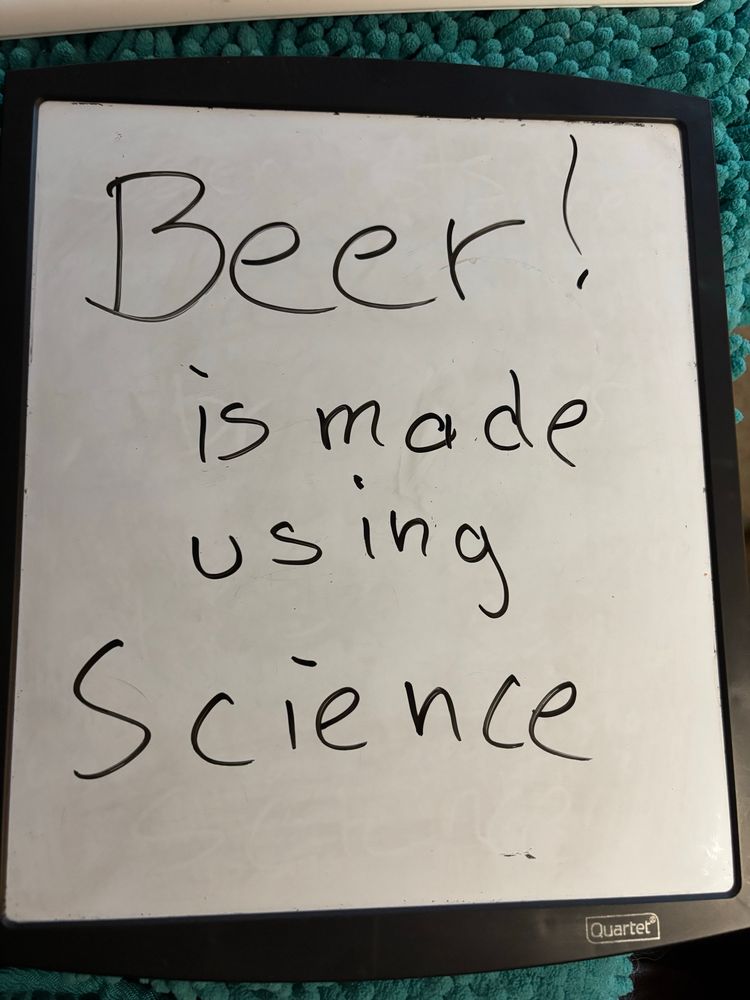 Beer!
is made
using
Science
Quartet®